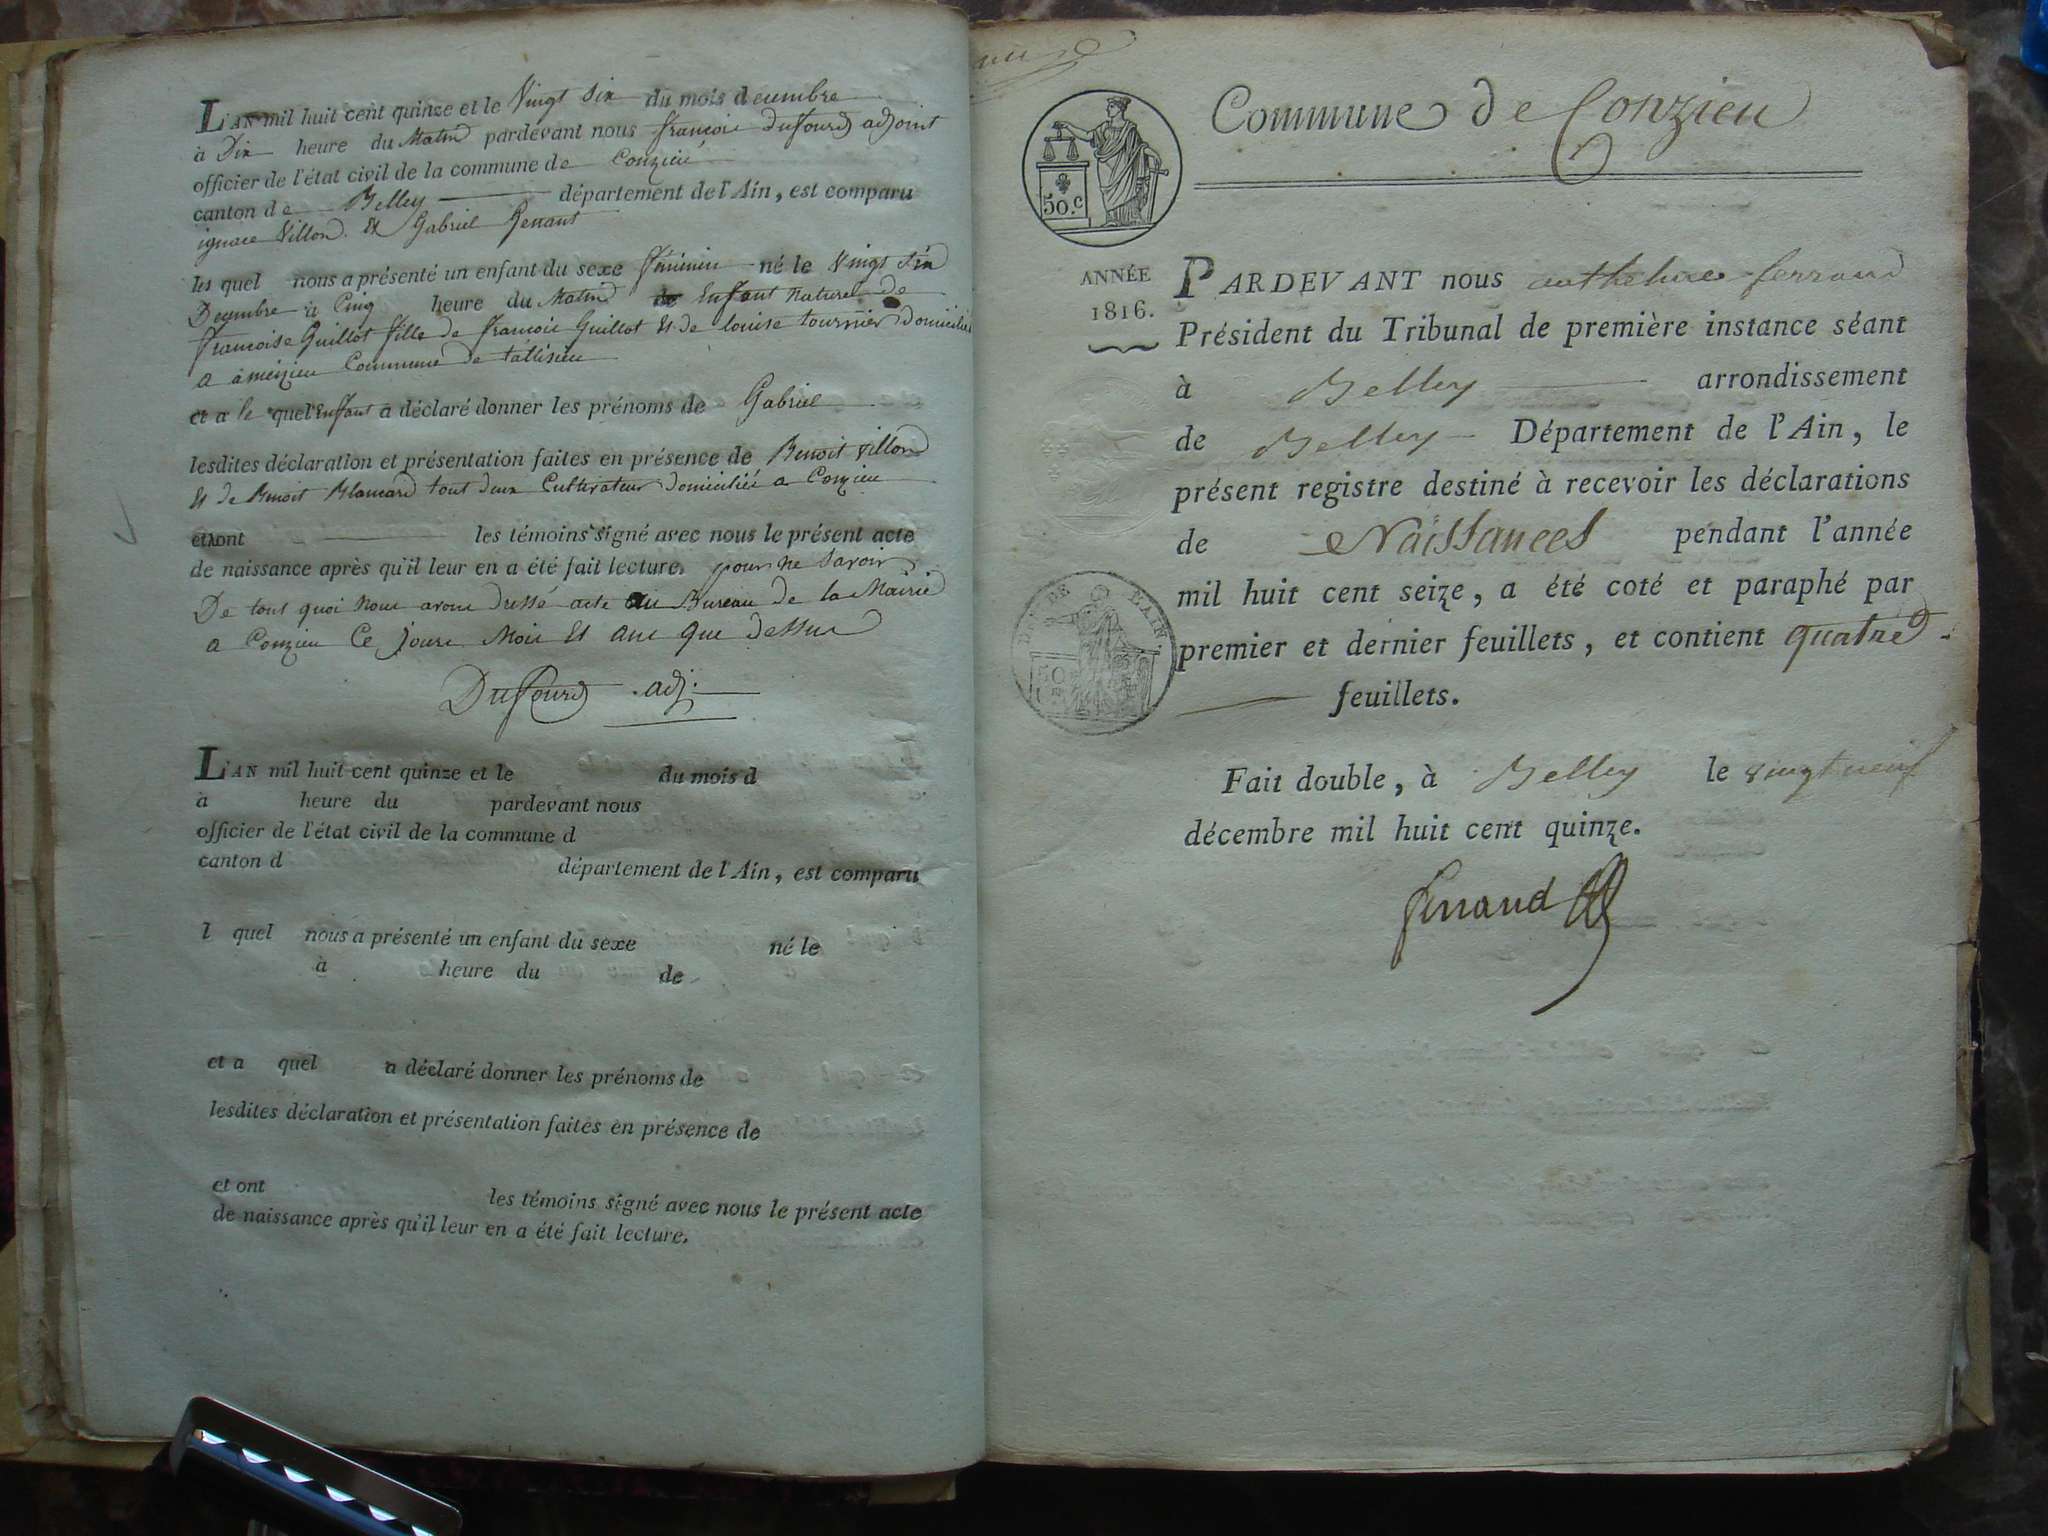 L'AN mil huit cent quinze et le Vingt Six du mois decembre
à Dix heure du Matin pardevant nous françois Dufourd adjoint
officier de l'état civil de la commune de Conzieu
canton de Belley département de l'Ain, est comparu
ignace Villond et Gabriel
les quel nous a présenté un enfant du sexe féminin né le Vingt Six
Decembre à Cinq heure du Matin de Enfant naturel de
francoise Guillot fille de francois Guillot et de louise tournier Domicilié
a ameyzieu Commune de talissieu
et a le quel Enfant a déclaré donner les prénoms de Gabriel
lesdites déclaration et présentation faites en présence de Benoit Villond
Et de Benoit Blancard tout deux Cultivateur domicilié a Conzieu
et ont les témoins signé avec nous le présent acte
de naissance après qu'il leur en a été fait lecture. pour ne Savoir
De tout quoi nous avons dressé acte au Bureau de la Mairie
a Conzieu Ce jours Mois Et ans que dessus
Dufourd adj.
L'AN mil huit cent quinze et le du mois d
à heure du pardevant nous
officier de l'état civil de la commune d
canton d département de l'Ain, est comparu
l quel nous a présenté un enfant du sexe né le
à heure du de
et a quel a déclaré donner les prénoms de
lesdites déclaration et présentation faites en présence de
et ont les témoins signé avec nous le présent acte
de naissance après qu'il leur en a été fait lecture.
Commune de Conzieu
50.c
ANNÉE
1816.
PARDEVANT nous anthelme ferrand
Président du Tribunal de première instance séant
à Belley arrondissement
de Belley Département de l'Ain, le
présent registre destiné à recevoir les déclarations
de Naissances pendant l'année
mil huit cent seize, a été coté et paraphé par
premier et dernier feuillets, et contient quatre
feuillets.
DEP. DE L'AIN
50
Fait double, à Belley le vingt neuf
décembre mil huit cent quinze.
ferrand